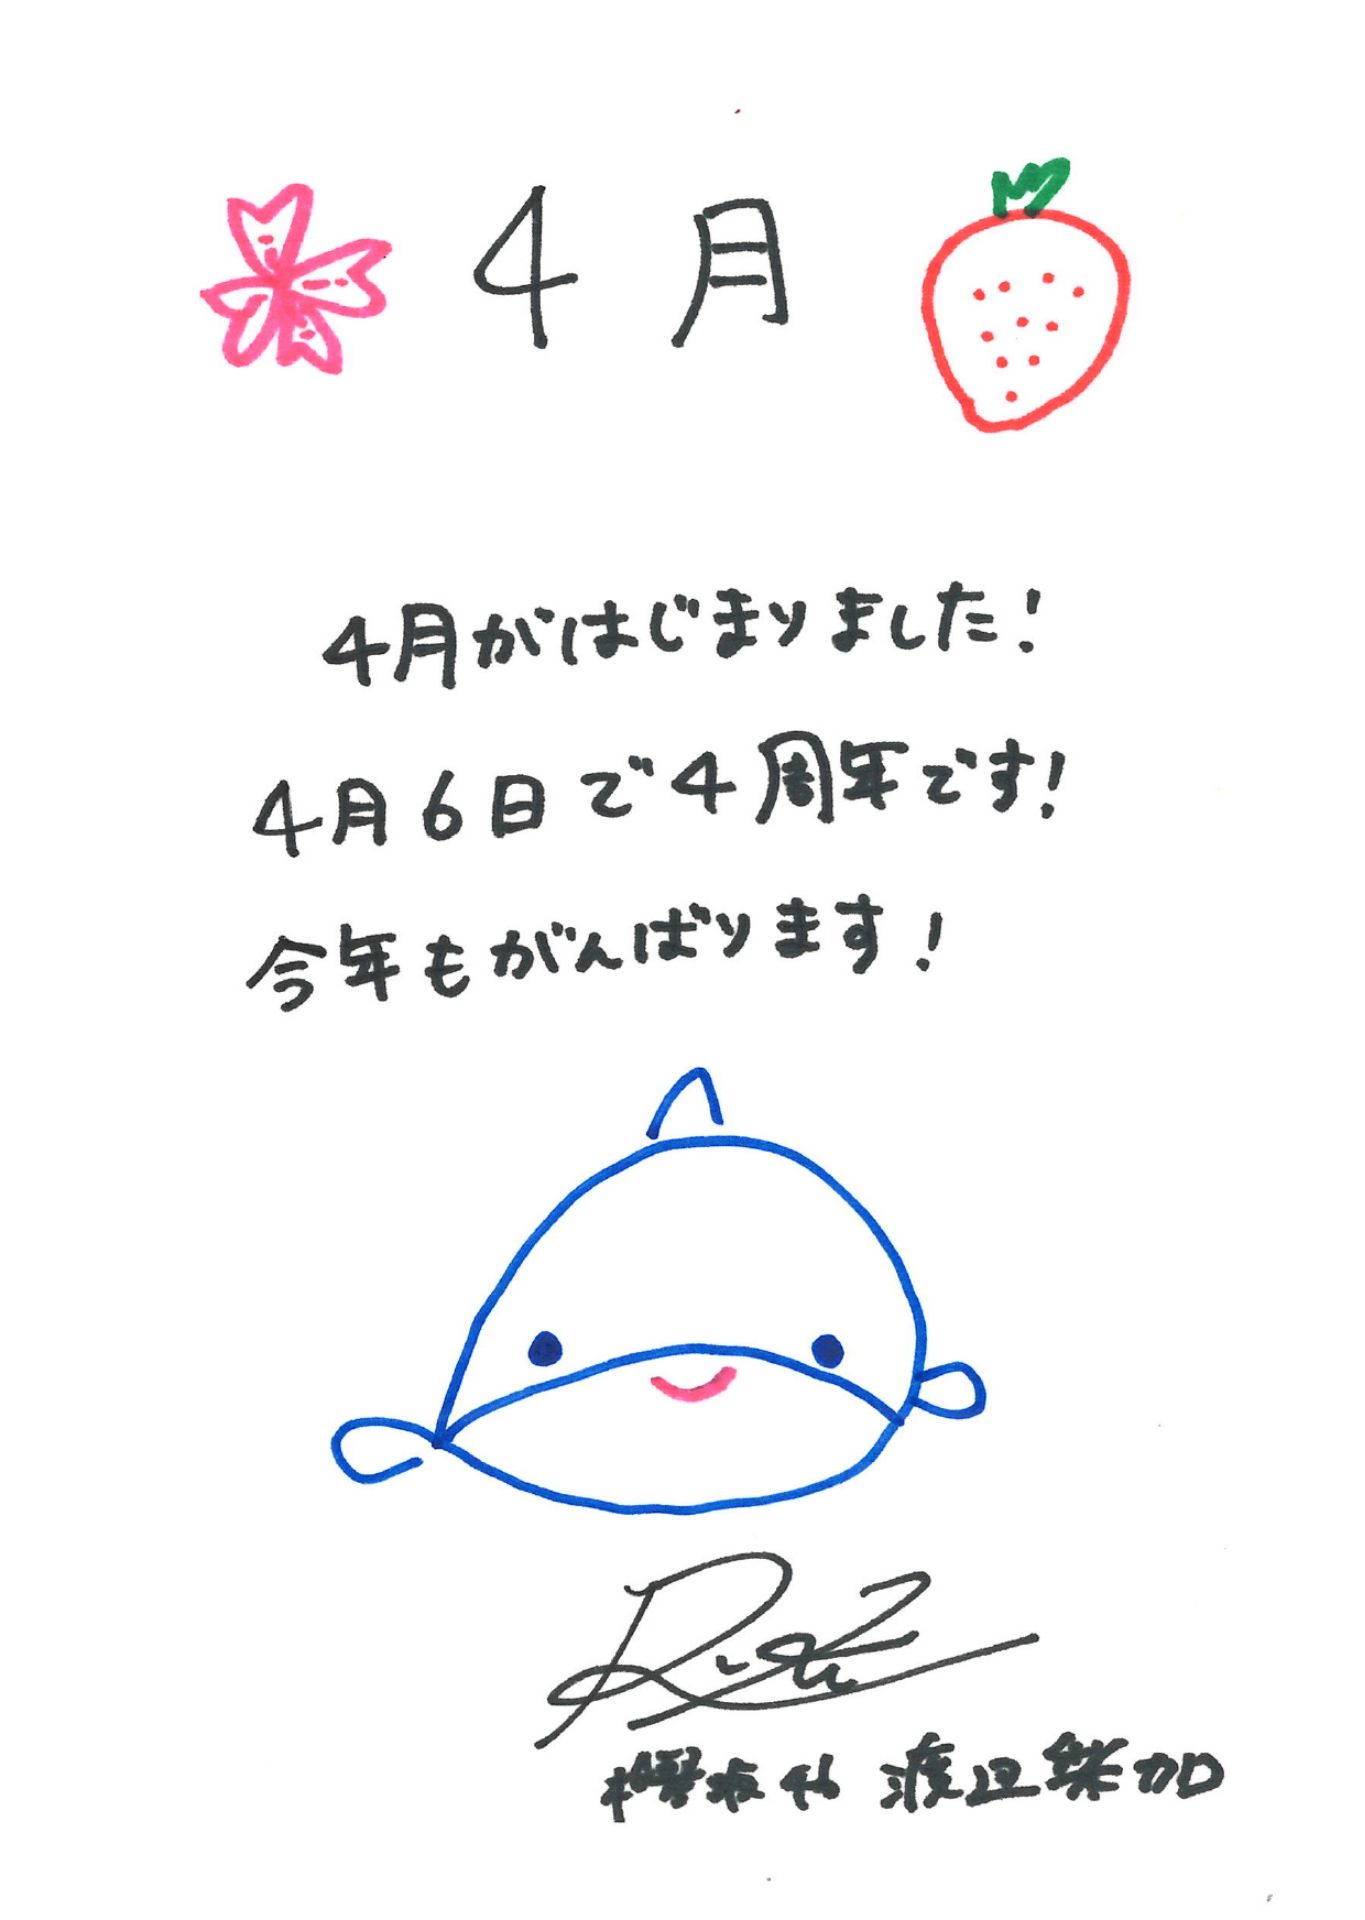 4月
4月がはじまりました！
4月6日で4周年です！
今年もがんばります！
櫻坂46 渡辺梨加